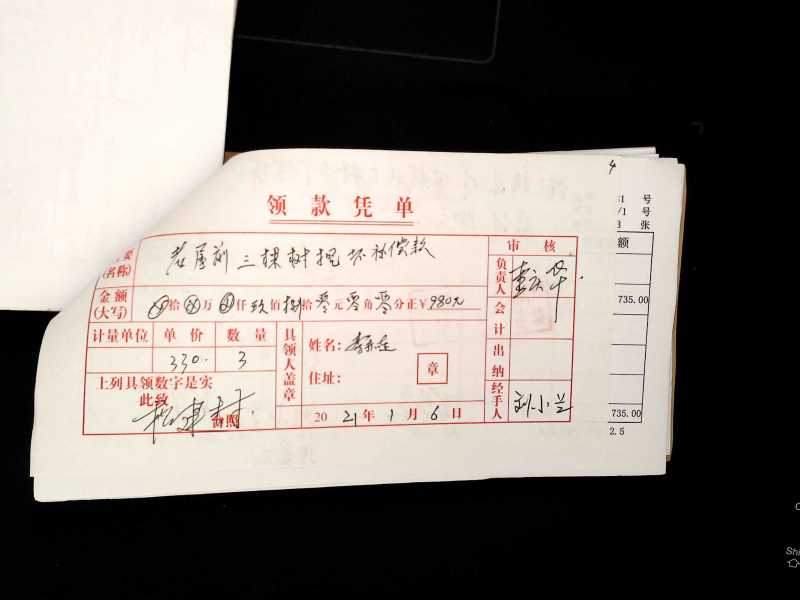 4
领款凭单
要
(名称)
老屋前三棵树挖坏补偿款
审核
负责人
金额
(大写)
拾 万 仟 玖佰捌拾零元零角零分正￥980元
会计
计量单位 单价 数量
330. 3
具领人盖章
姓名：
住址：
章
出纳
上列具领数字是实
此致
台照
2021年1月6日
经手人
刘小兰
号
/1 号
张
额
735.00
735.00
2.5
Shi